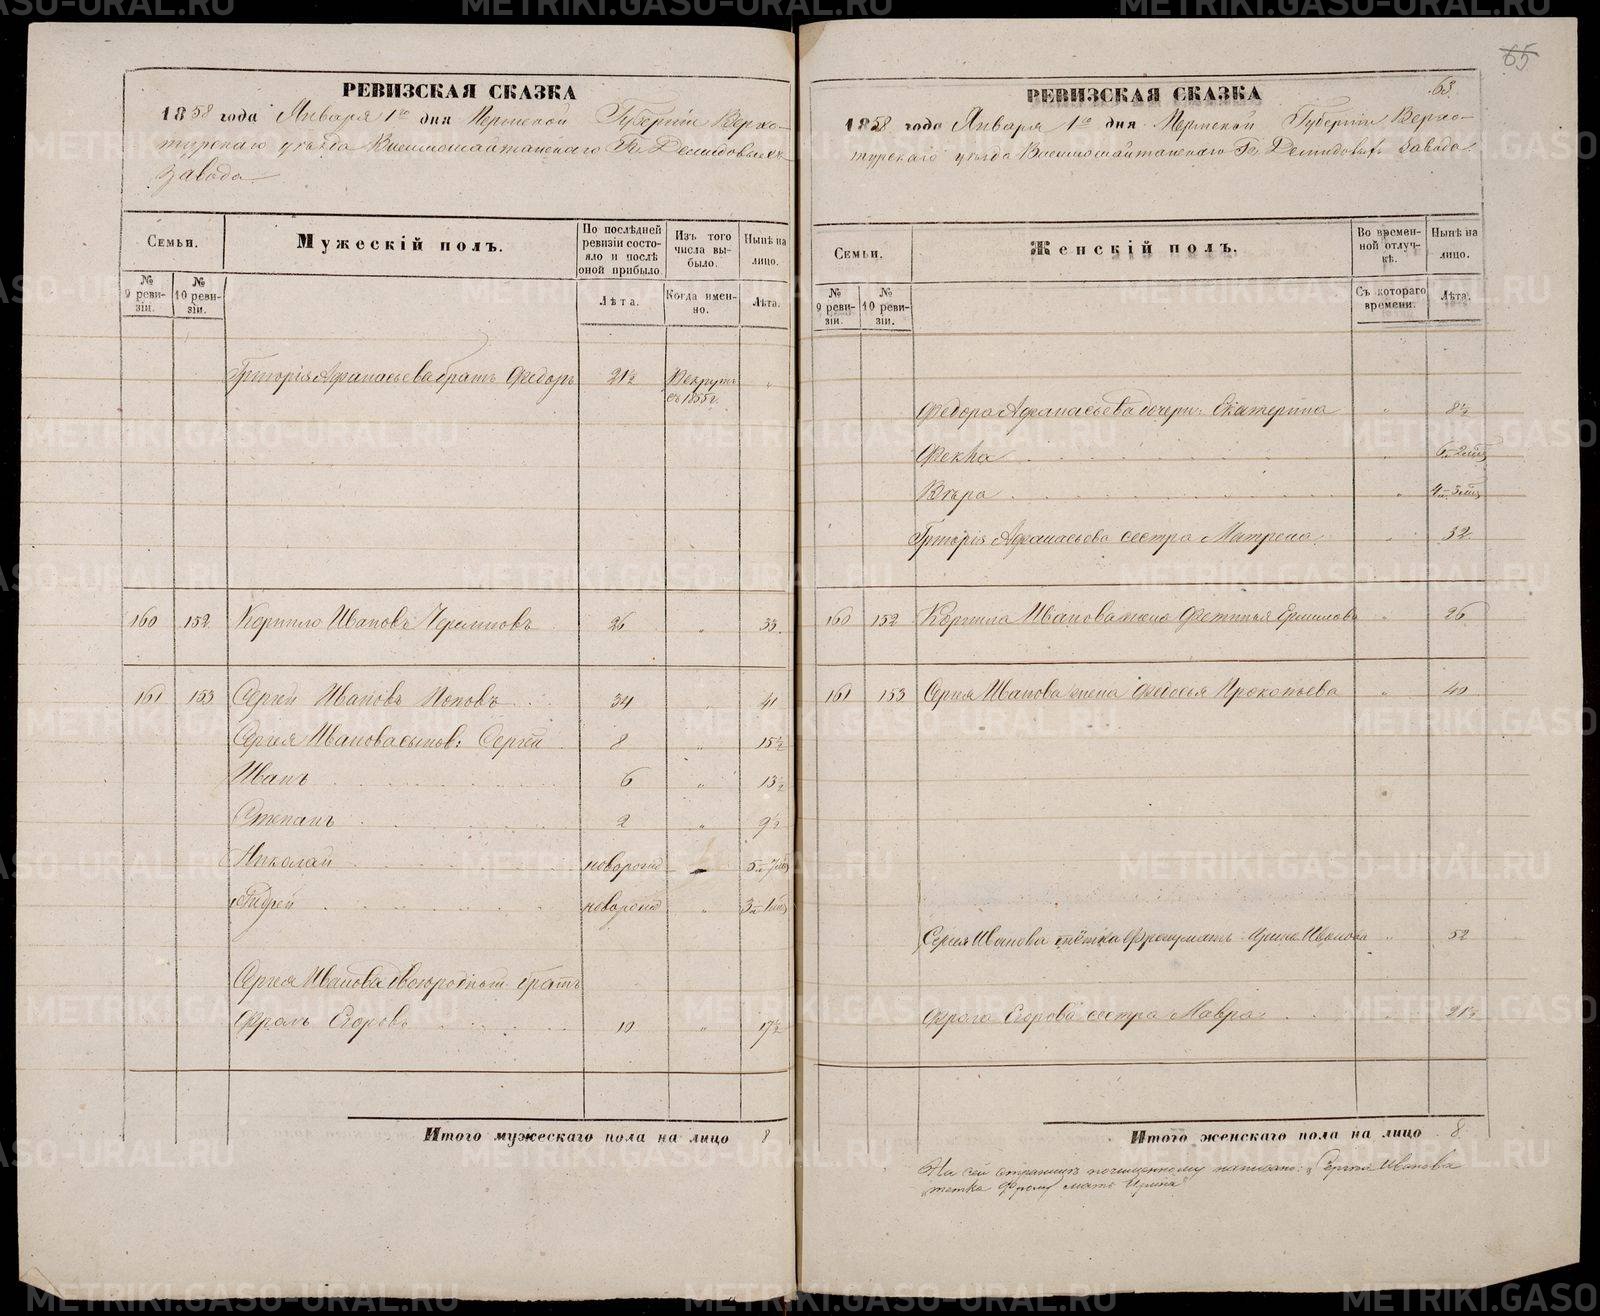 РЕВИЗСКАЯ СКАЗКА
1858 года Января 1го дня Пермской Губерніи Верхо-
турскаго уѣзда Висимошайтанскаго Гг. Демидовыхъ
завода
Семьи.
Мужескій полъ.
По послѣдней ревизіи состояло и послѣ оной прибыло.
Изъ того числа выбыло.
Нынѣ на лицо.
№ 9 ревизіи.
№ 10 ревизіи.
Лѣта.
Когда именно.
Лѣта.
Григорія Афанасьева братъ Федоръ 21½ Рекрутъ съ 1855 г. "
160 152 Корнило Ивановъ 26 " 33
161 153 Сергей Ивановъ Поповъ 34 " 41
Сергея Иванова сынов: Сергей 8 " 15½
Иванъ 6 " 13½
Степанъ 2 " 9½
Николай новорожд 5 л 7 мц
Андрей новорожд " 3 л 1 мц
Сергея Иванова двоюродный братъ
Фролъ Егоровъ 10 " 17½
Итого мужескаго пола на лицо 8
65
63.
РЕВИЗСКАЯ СКАЗКА
1858 года Января 1го дня Пермской Губерніи Верхо-
турскаго уѣзда Висимошайтанскаго Гг. Демидовыхъ завода.
Семьи.
Женскій полъ.
Во временной отлучкѣ.
Нынѣ на лицо.
№ 9 ревизіи.
№ 10 ревизіи.
Съ котораго времени.
Лѣта.
Федора Афанасьева дочери: Екатерина " 8½
Фекла " 6 л 2 мц
Вѣра " 4 л 3 мц
Григорія Афанасьева сестра Матрена " 32
160 152 Корнила Иванова жена Фетинья Ермилова " 26
161 153 Сергея Иванова жена Федосья Прокопьева " 40
Сергея Иванова тётка Фролу мать Ирина Иванова " 52
Фрола Егорова сестра Мавра " 21½
Итого женскаго пола на лицо 8
На сей страницѣ почищенному написано: "Сергея Иванова
"тетка Фролу мать Ирина"
METRIKI.GASO-URAL.RU